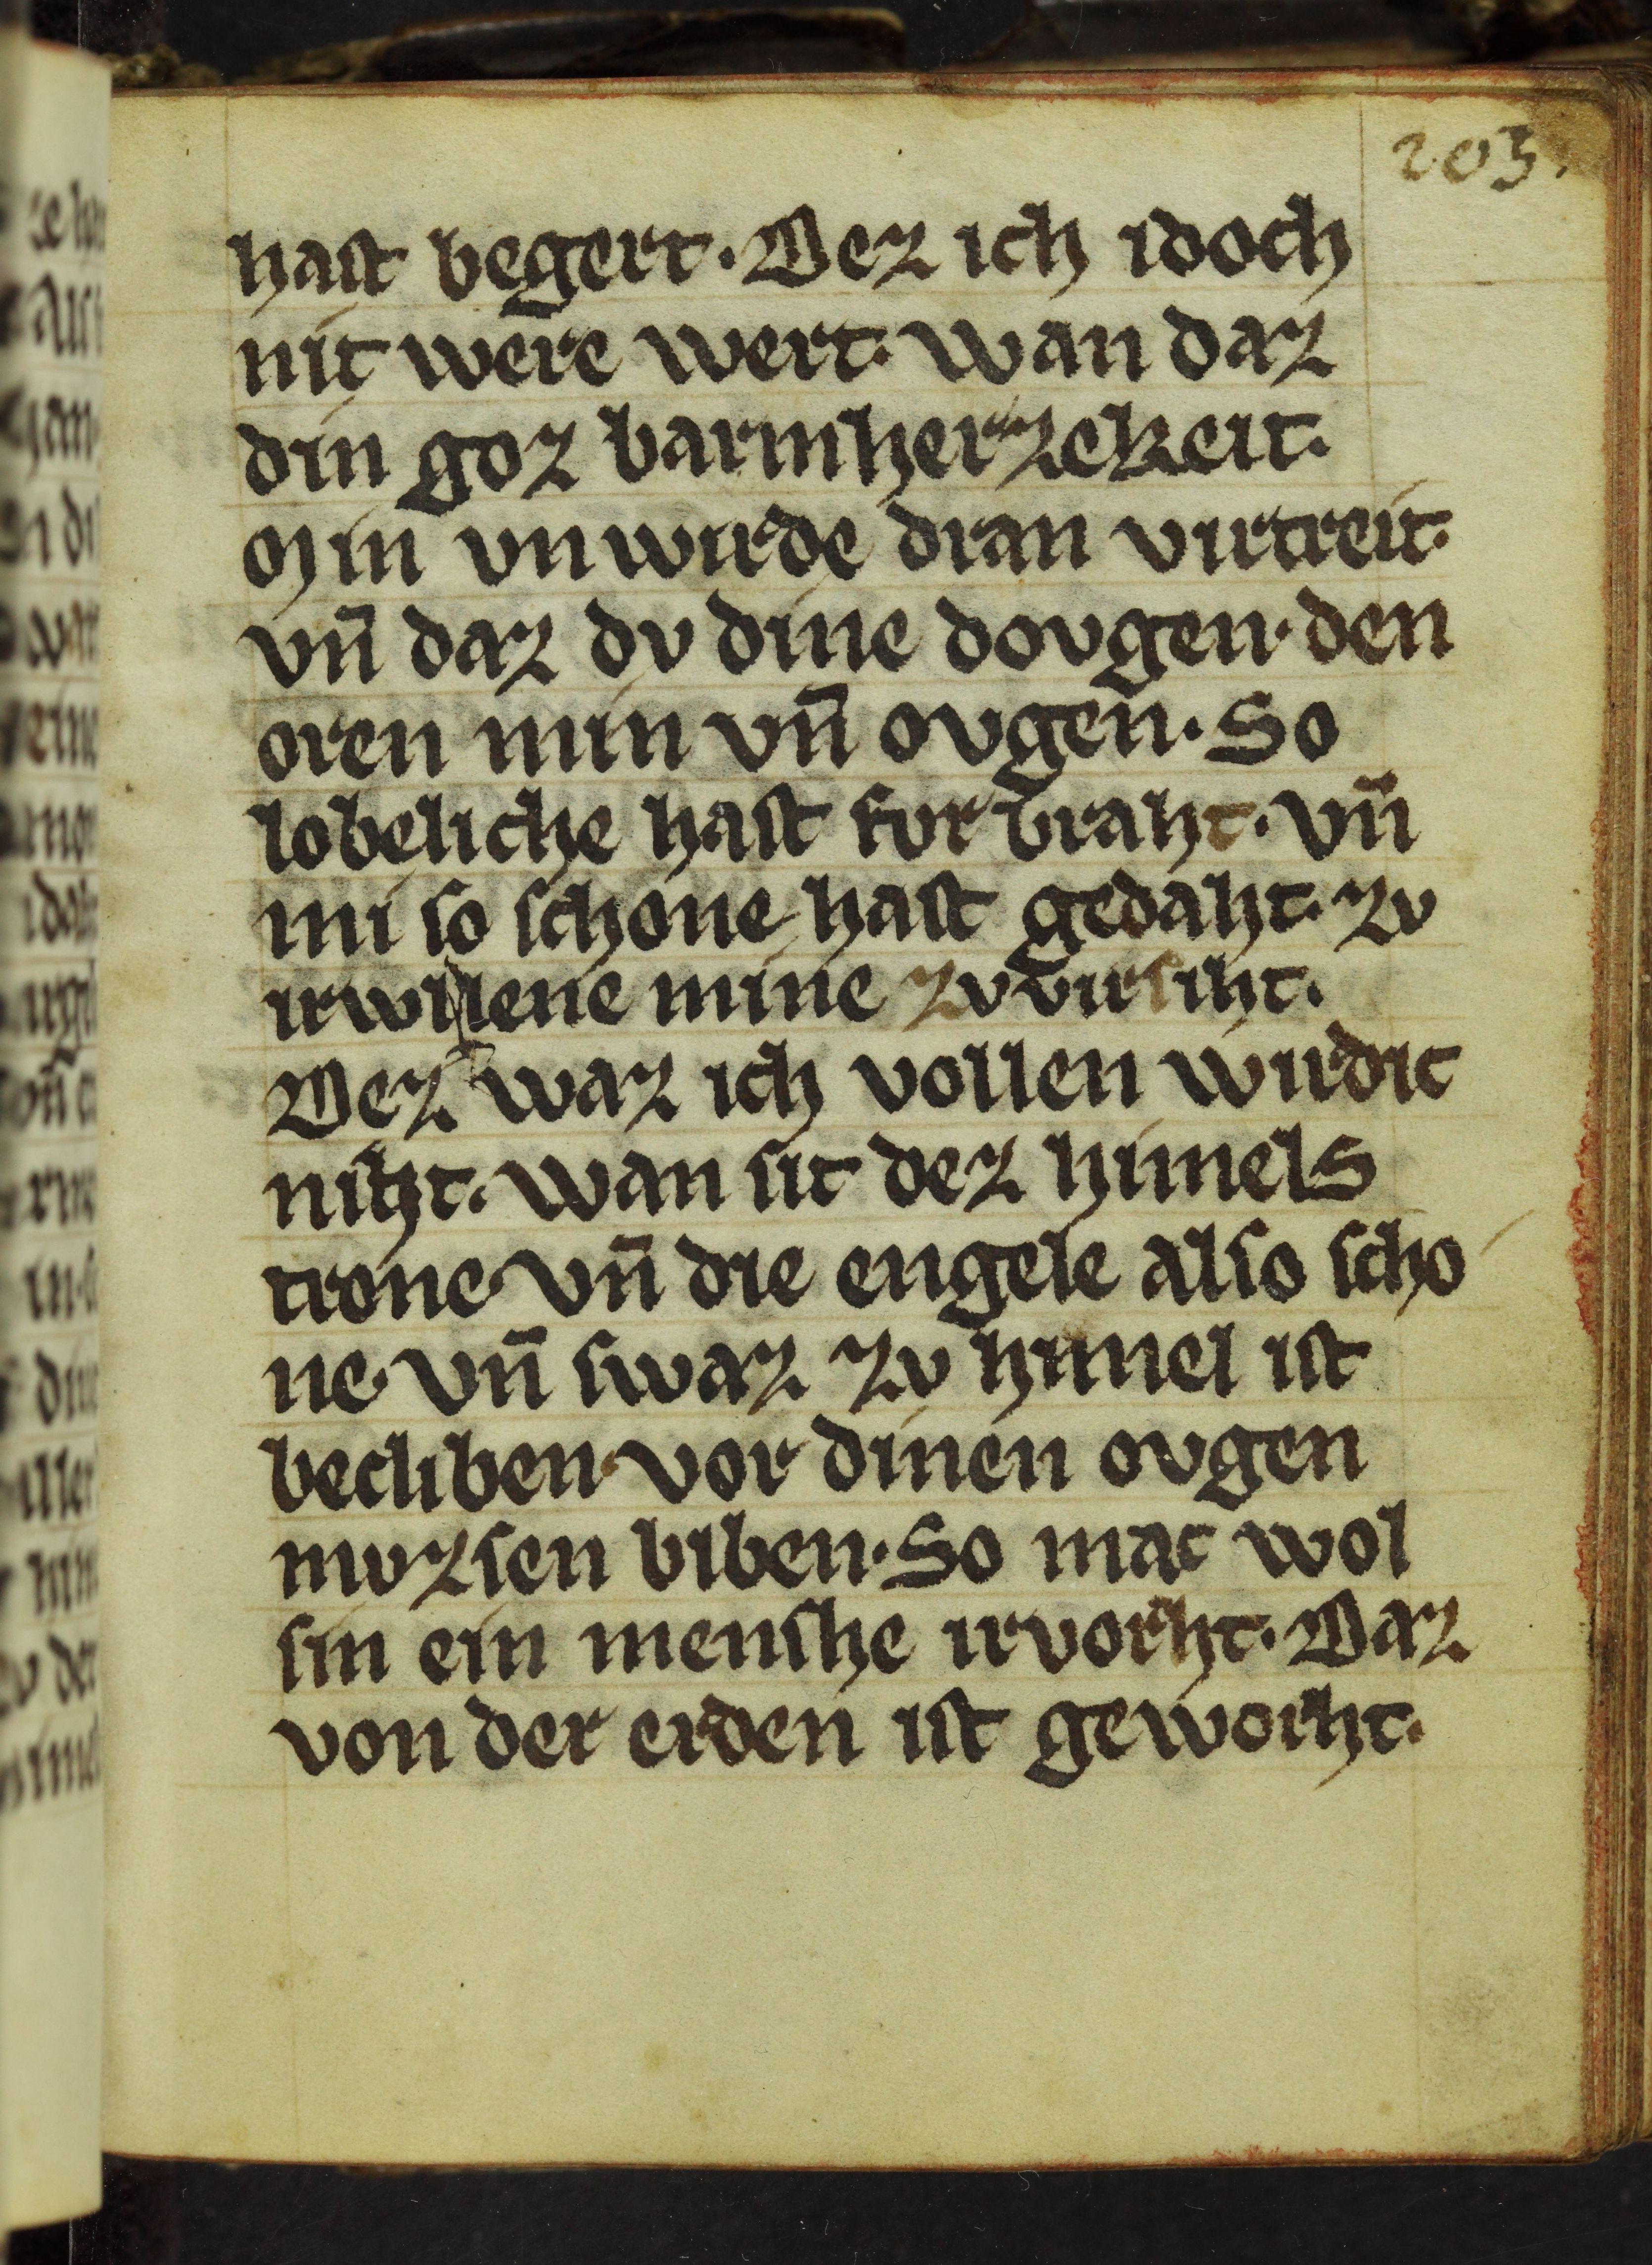 203.
hast begert. Dez ich idoch
nit were wert. wan daz
din goz barmherzekeit.
Min vnwirde dran virtreit.
vn̄ daz dv dine dovgen. den
oren min vn̄ ovgen. So
lobeliche hast fvr braht. vn̄
mi so schone hast gedaht. zv
irwillene mine zvvirsiht.
Dez waz ich vollen wirdic
niht. wan sit dez himels
trone. vn̄ die engele also scho
ne. vn̄ swaz zv himel ist
becliben. vor dinen ovgen
mvzsen biben. So mac wol
sin ein menshe irvorht. Daz
von der erden ist geworht.